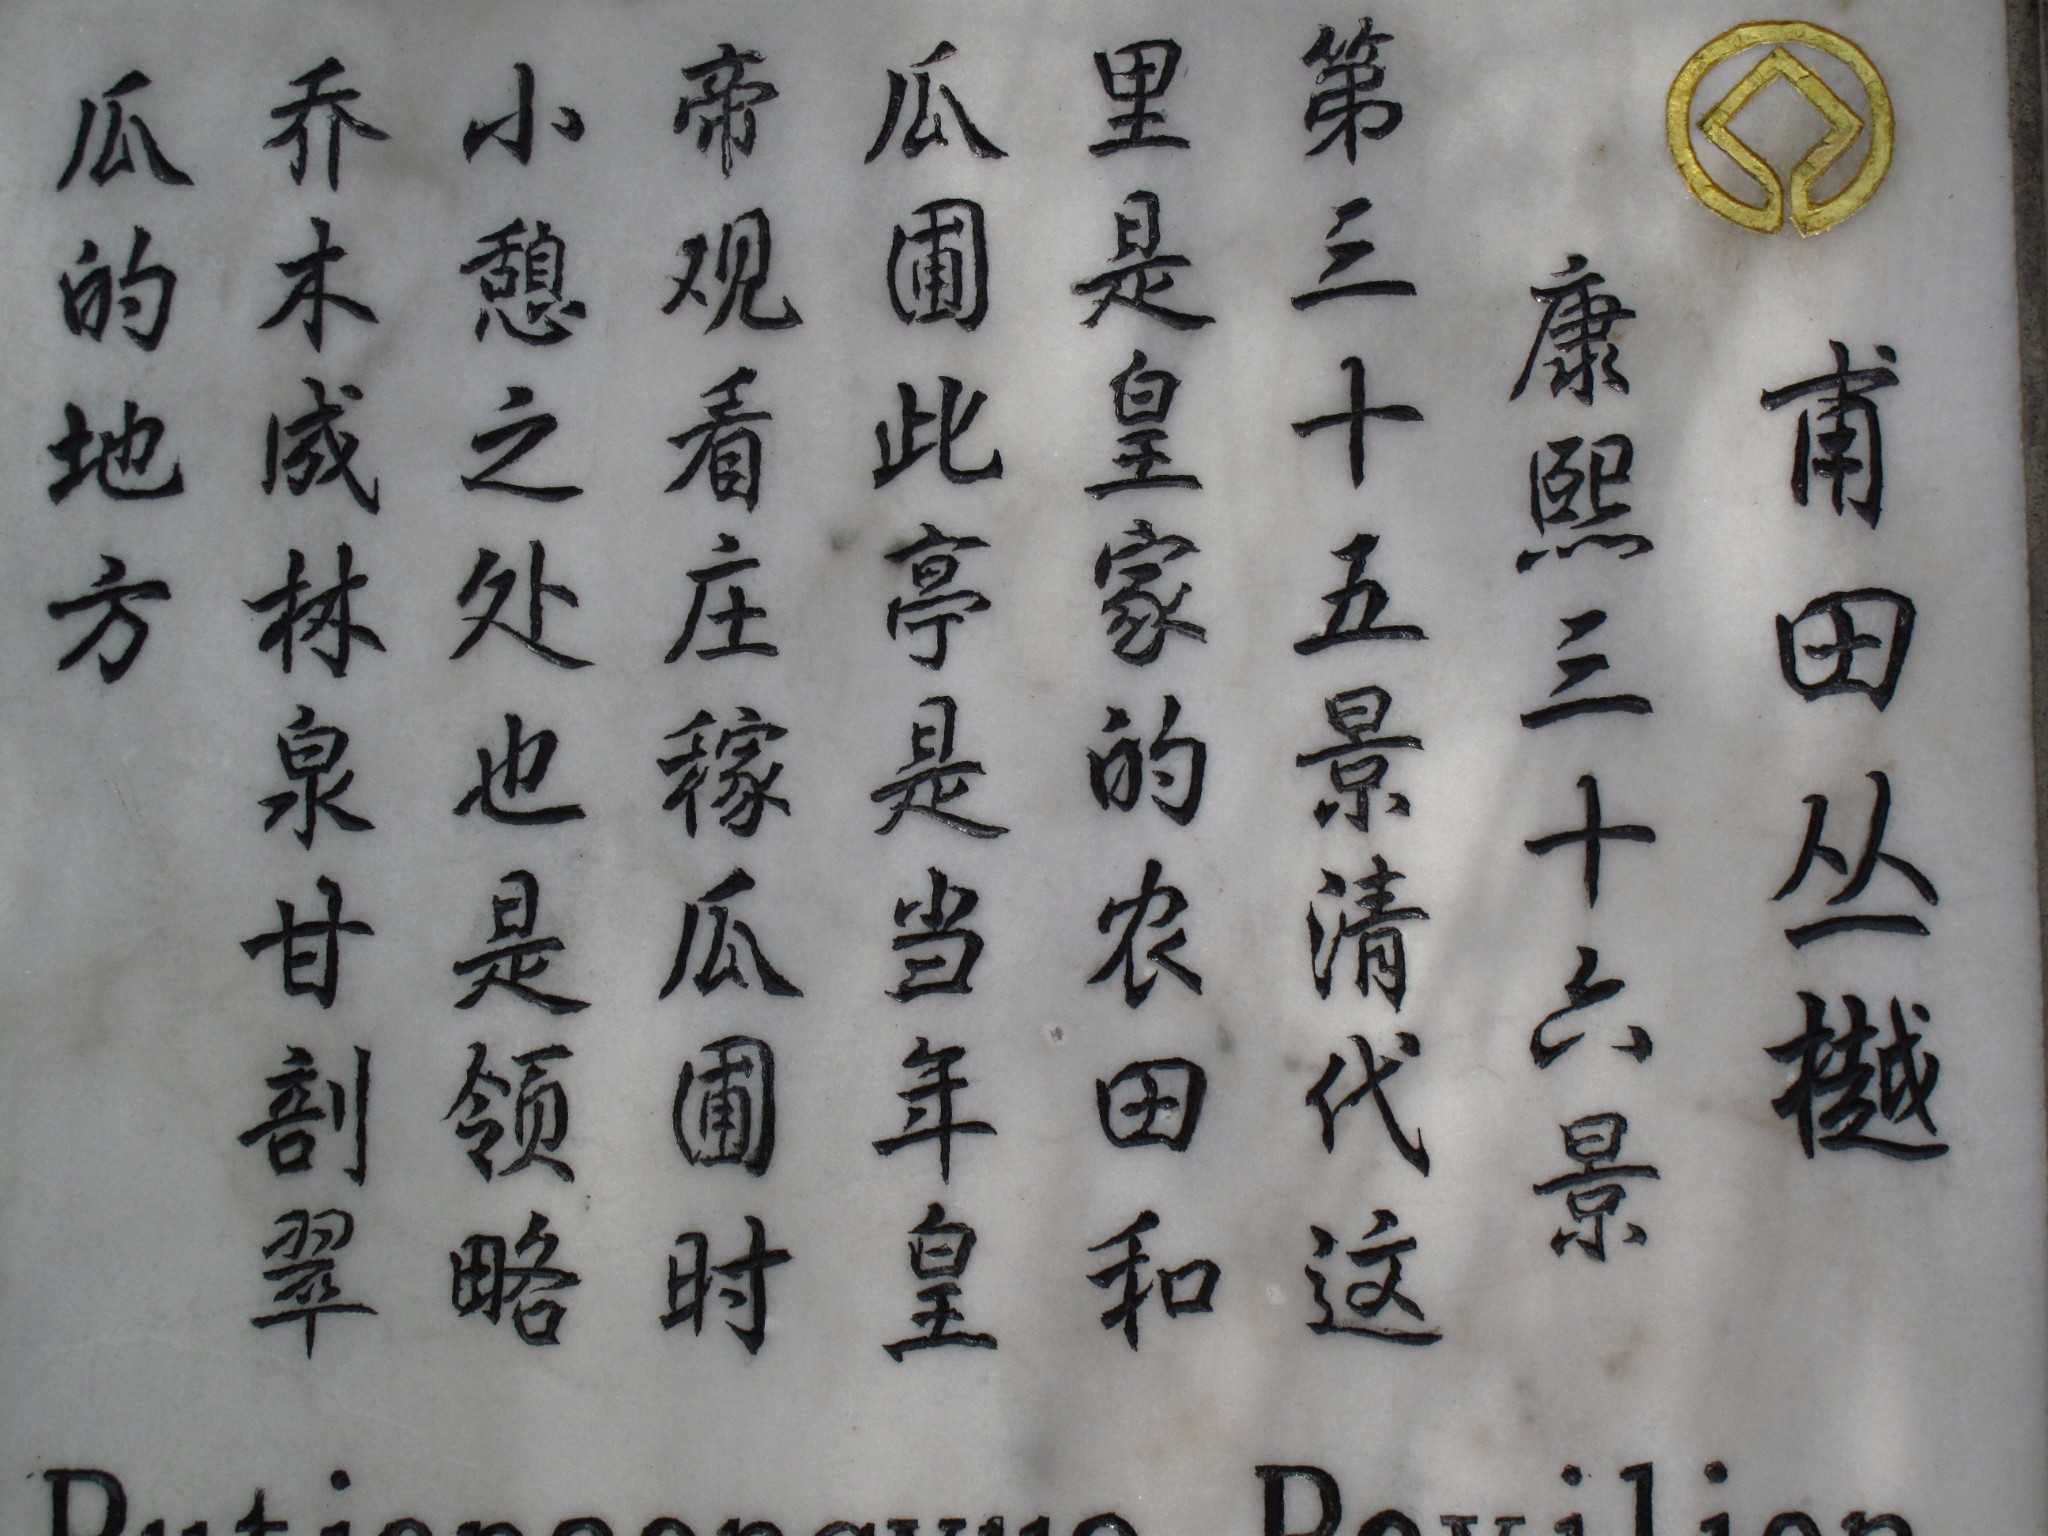 甫田丛樾
康熙三十六景
第三十五景清代这
里是皇家的农田和
瓜圃此亭是当年皇
帝观看庄稼瓜圃时
小憩之处也是领略
乔木成林泉甘剖翠
瓜的地方
Putiancongyue Pavilion